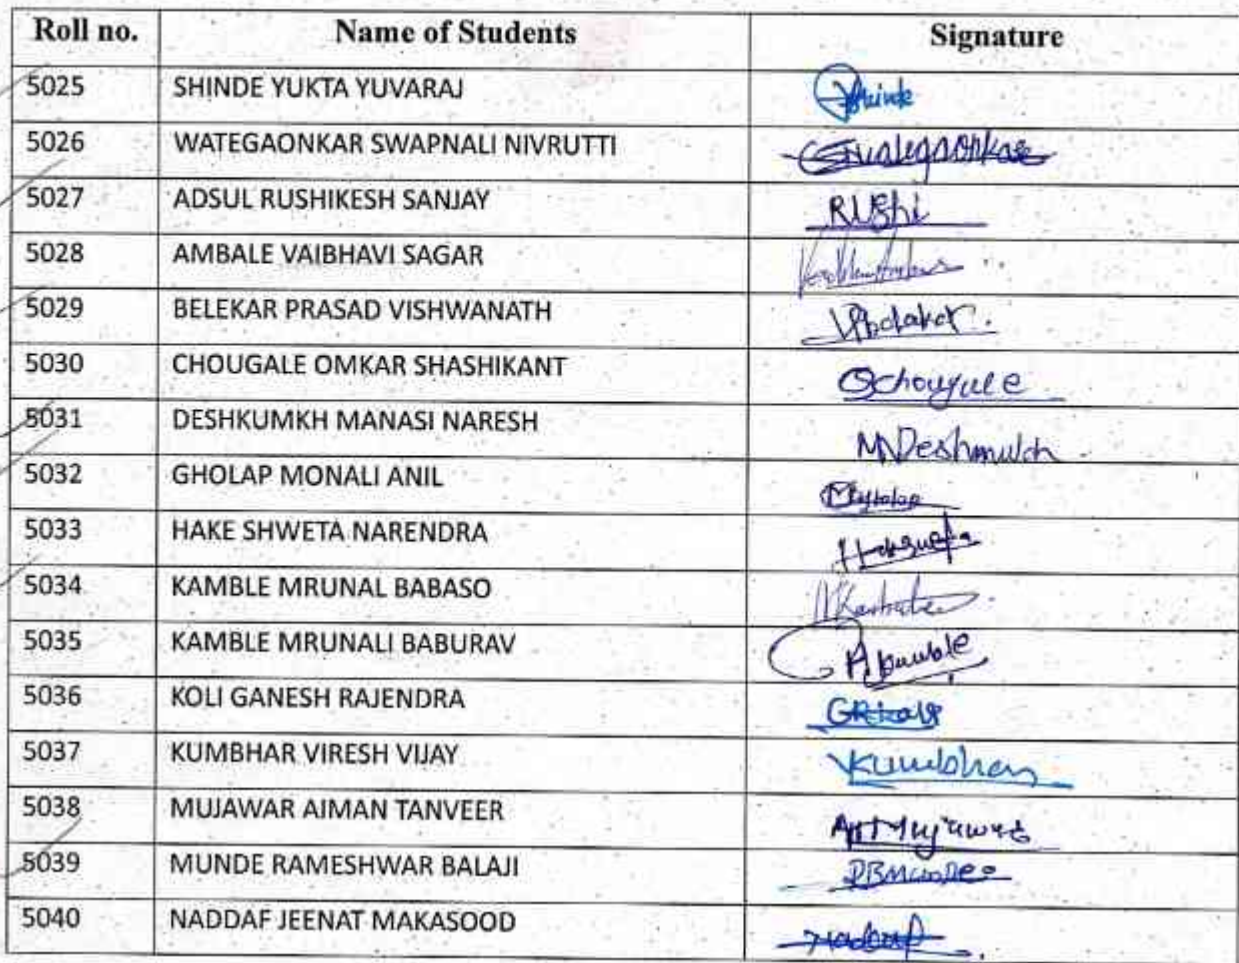 Roll no. Name of Students Signature
5025 SHINDE YUKTA YUVARAJ Shinde
5026 WATEGAONKAR SWAPNALI NIVRUTTI
5027 ADSUL RUSHIKESH SANJAY Rushi
5028 AMBALE VAIBHAVI SAGAR
5029 BELEKAR PRASAD VISHWANATH
5030 CHOUGALE OMKAR SHASHIKANT Ochougule
5031 DESHKUMKH MANASI NARESH MDeshmukh
5032 GHOLAP MONALI ANIL
5033 HAKE SHWETA NARENDRA
5034 KAMBLE MRUNAL BABASO
5035 KAMBLE MRUNALI BABURAV
5036 KOLI GANESH RAJENDRA
5037 KUMBHAR VIRESH VIJAY VKumbhar
5038 MUJAWAR AIMAN TANVEER
5039 MUNDE RAMESHWAR BALAJI
5040 NADDAF JEENAT MAKASOOD